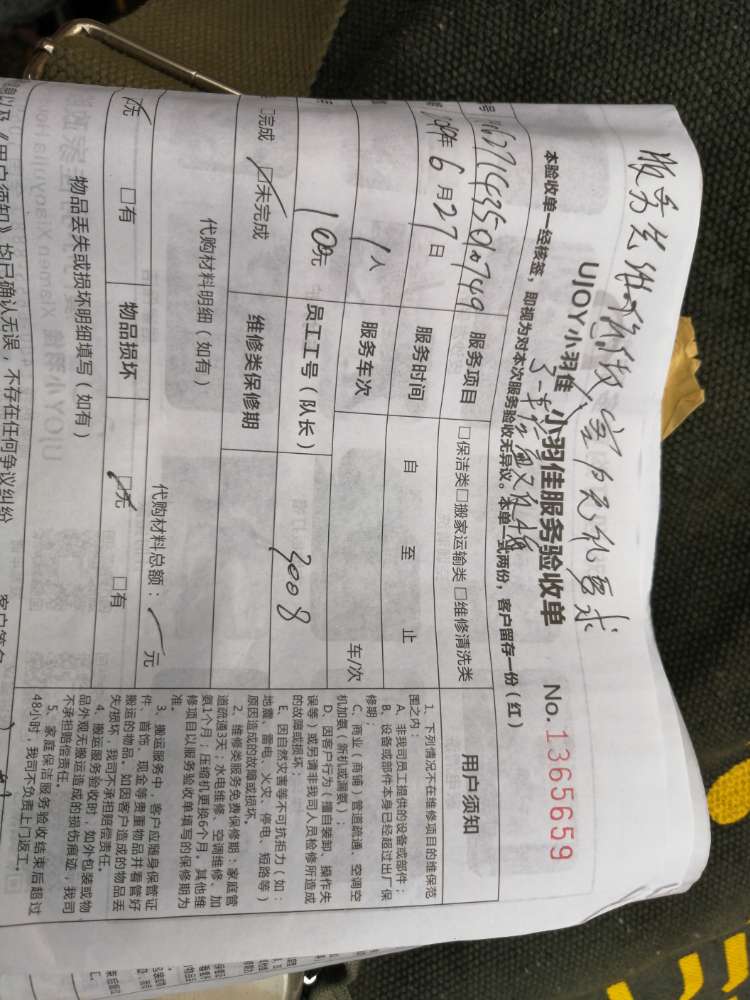 UJOY小羽佳 小羽佳服务验收单 No.1365659
本验收单一经核签，即视为对本次服务验收无异议。本单一式两份，客户留存一份（红）
服务项目 □保洁类□搬家运输类□维修清洗类
年6月27日 服务时间 自 至 止
1人 服务车次 车/次
100元 员工工号（队长） 3008
□完成 ☑未完成 维修类保修期
代购材料明细（如有） 代购材料总额： 元
无 □有 物品损坏 ☑无 □有
物品丢失或损坏明细填写（如有）
《用户须知》均已确认无误，不存在任何争议纠纷
用户须知
1、下列情况不在维修项目的维保范
围之内：
A、非我司员工提供的设备或部件；
B、设备或部件本身已经超过出厂保
修期；
C、商业（商铺）管道疏通、空调空
机加氨（新机或漏氨）；
D、因客户行为（擅自装卸、操作失
误等）或另请非我司人员检修所造成
的故障或损坏；
E、因自然灾害等不可抗拒力（如：
地震、雷电、火灾、停电、短路等）
原因造成的故障或损坏。
2、维修类服务免费保修期：家庭管
道疏通3天；水电维修、空调维修、加
氨1个月；压缩机更换6个月。其他维
修项目以服务验收单填写的保修期为
准。
3、搬运服务中，客户应随身保管证
件、首饰、现金等贵重物品并看管好
搬运的物品，如因客户造成的物品丢
失/损坏，我司不承担赔偿责任。
4、搬运服务验收时，如外包装或物
品外观无搬运造成的损伤痕迹，我司
不承担赔偿责任。
5、家庭保洁服务验收结束后超过
48小时，我司不负责上门返工。